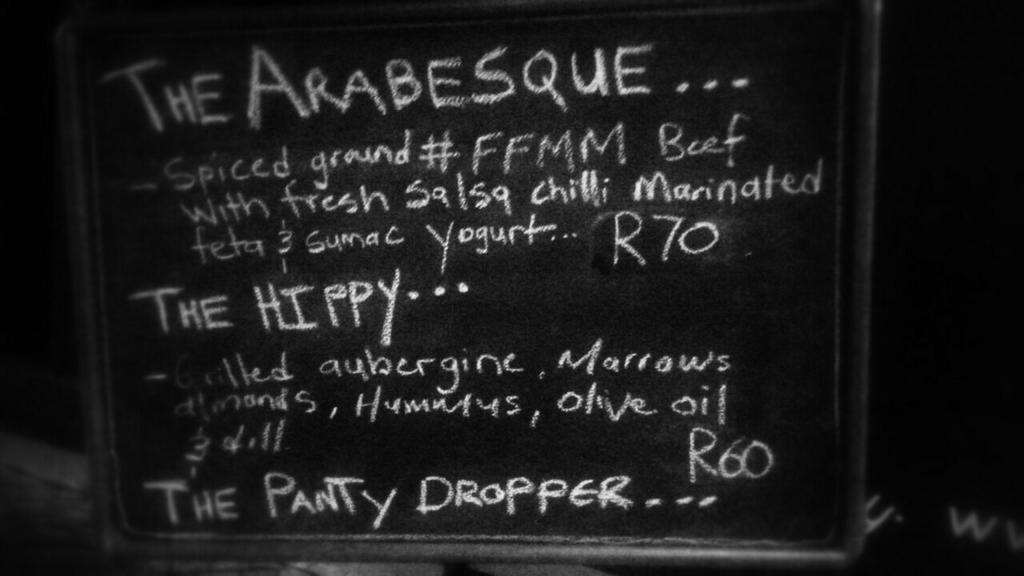 THE ARABESQUE...
- Spiced ground #FFMM Beef
with fresh Salsa chilli Marinated
feta & Sumac Yogurt... R70
THE HIPPY...
- Grilled aubergine, Marrows
almonds, Hummus, olive oil
& dill
R60
THE PANTY DROPPER....
y. ww